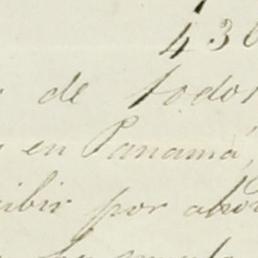 430
de todos
en Panamá,
cibir por ahor